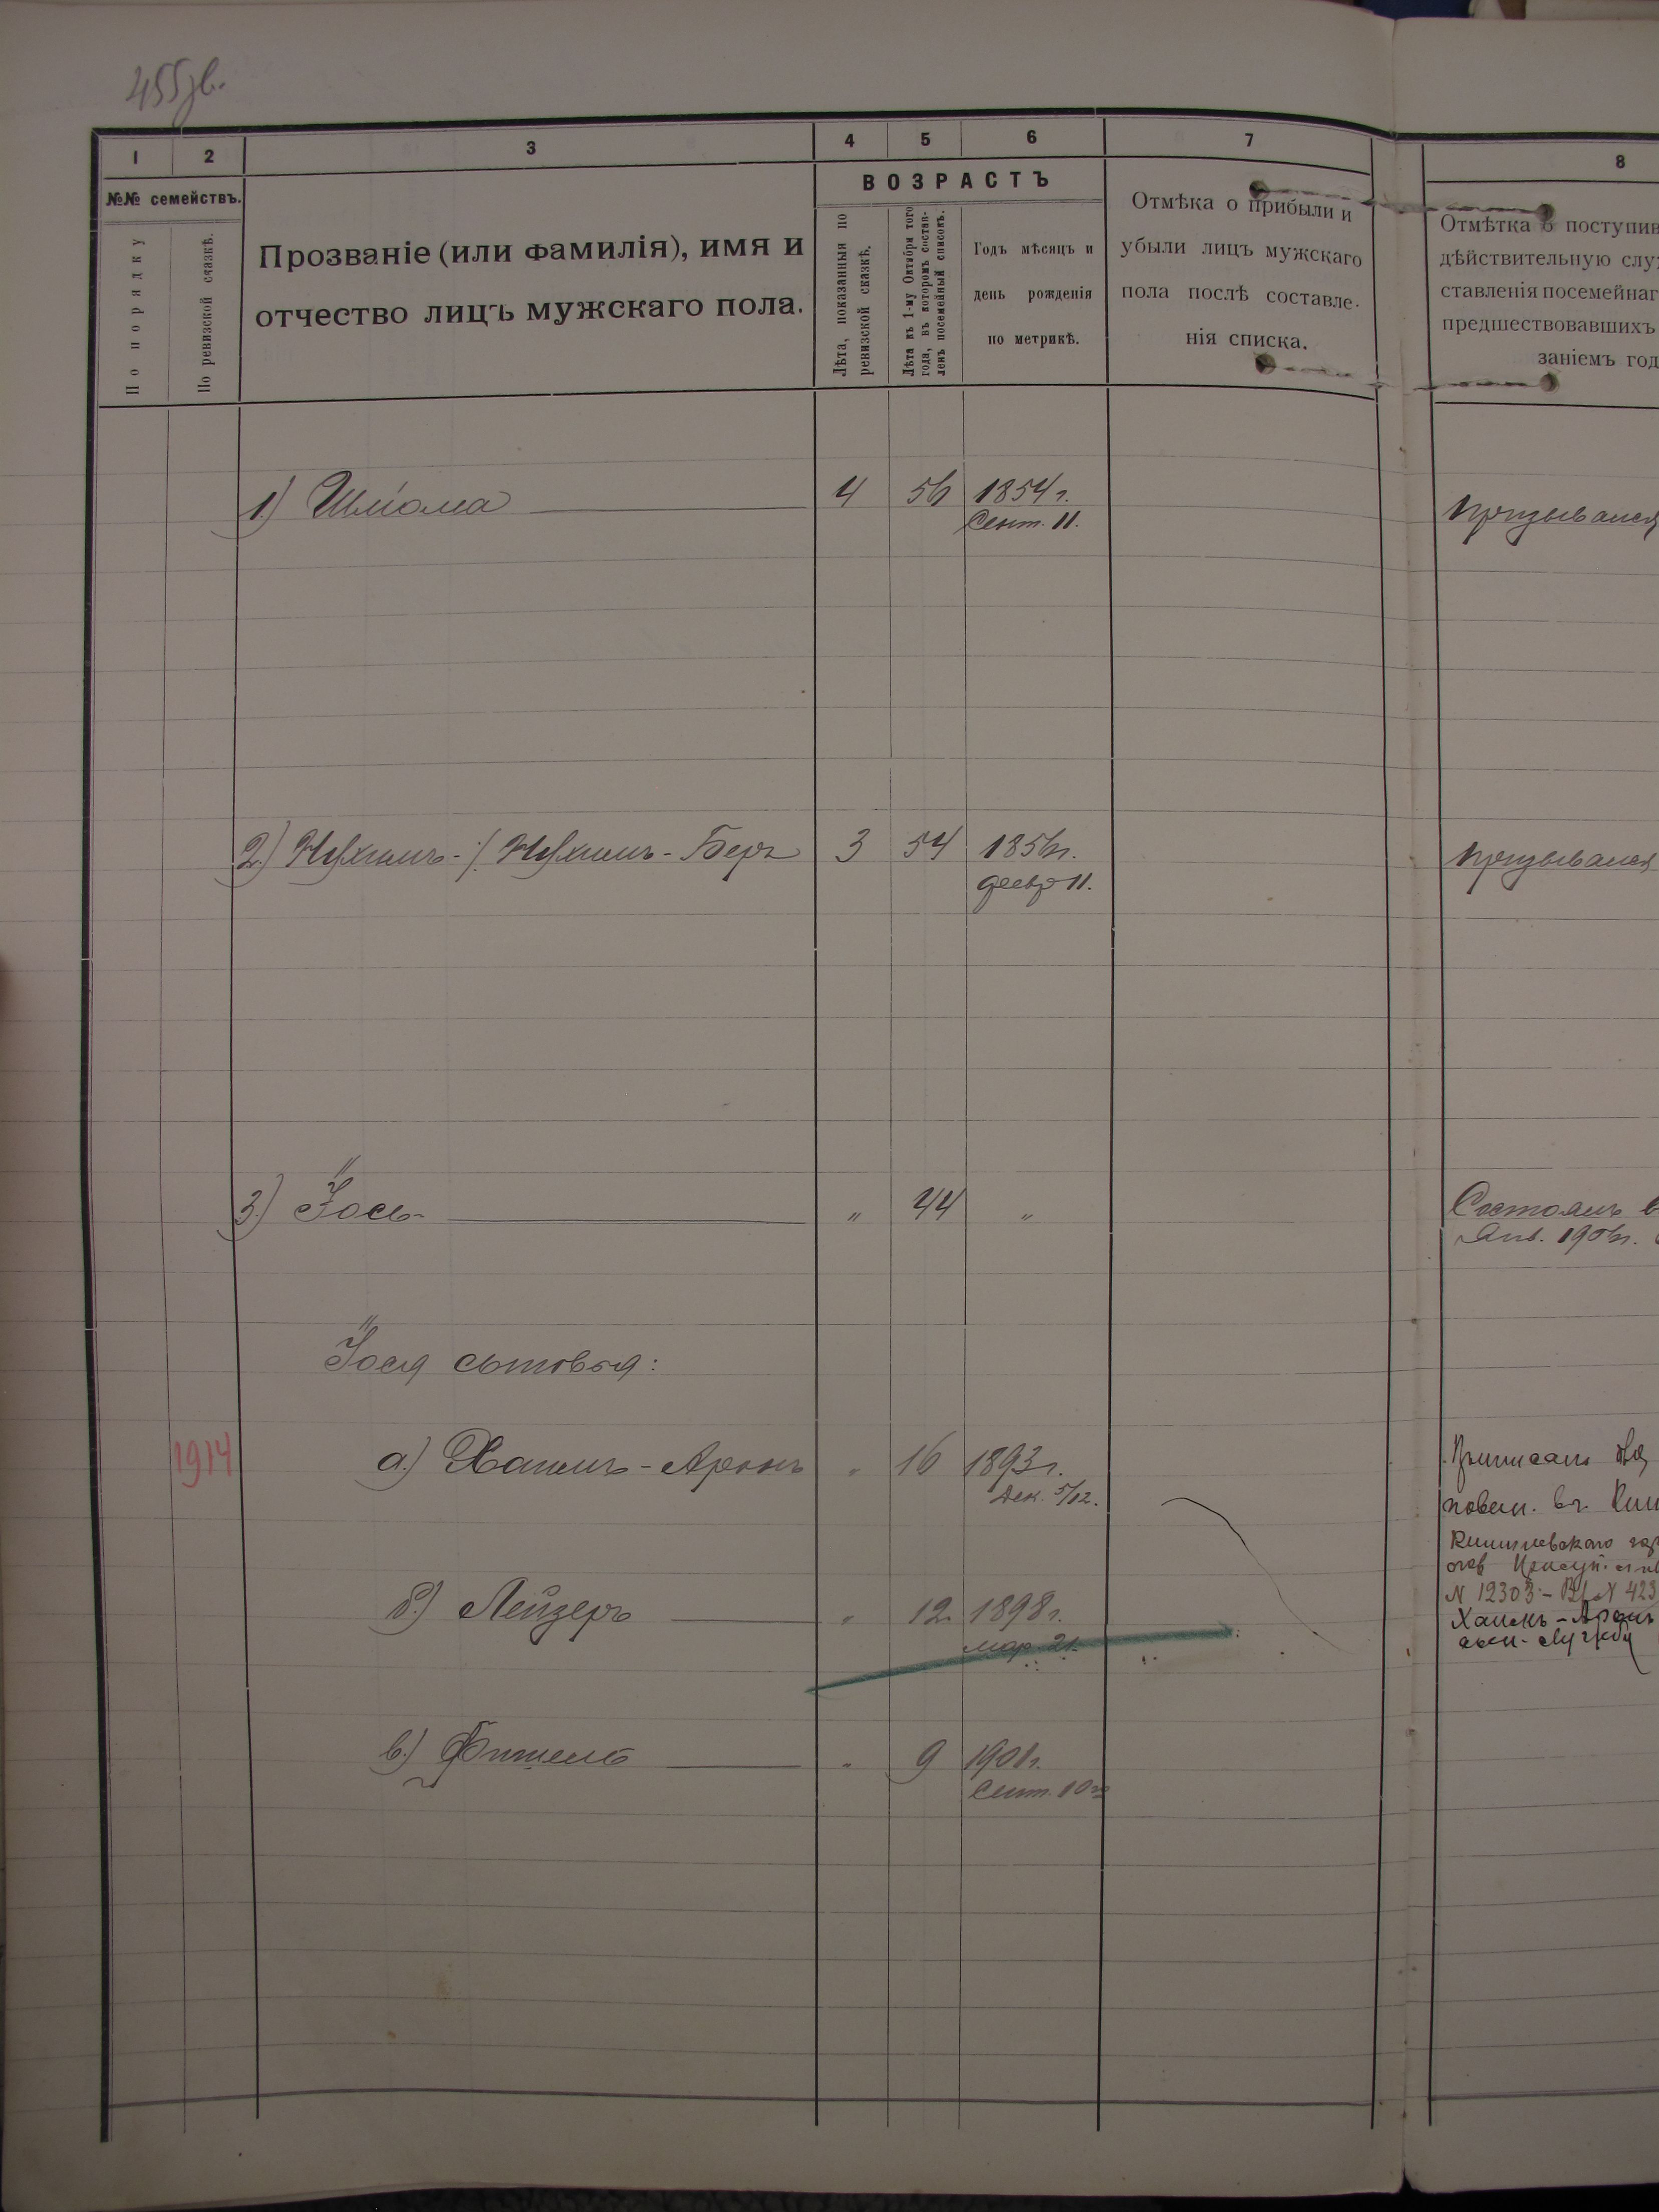 455зв.
1 2 3 4 5 6 7 8
№№ семействъ.
По порядку
По ревизской сказкѣ.
Прозваніе (или фамилія), имя и
отчество лицъ мужскаго пола.
ВОЗРАСТЪ
Лѣта, показанныя по
ревизской сказкѣ.
Лѣта къ 1-му Октября того
года, въ которомъ состав-
ленъ посемейный списокъ.
Годъ мѣсяцъ и
день рожденія
по метрикѣ.
Отмѣка о прибыли и
убыли лицъ мужскаго
пола послѣ составле-
нія списка.
Отмѣтка о поступив
дѣйствительную слу
ставленія посемейнаг
предшествовавшихъ
заніемъ год
1.) Шлiома 4 56 1854 г.
Сент. 11.
призывался
2.) Нухимъ-/Нухимъ-Беръ 3 54 1856г.
февр 11.
призывался
3.) Іось " 44 "
Состоялъ в
Янв. 1906г.
Іося сыновья:
1914 а.) Хаимъ-Аронъ " 16 1893г.
Дек. 5/12.
Приписанъ
повин. въ Киш
Кишиневскаго гор
N 12303 - N 423
Хаимъ-Аронъ
службу
б.) Лейзеръ " 12. 1898г.
мар 21.
в.) Фишель " 9 1901г.
Сент. 10го